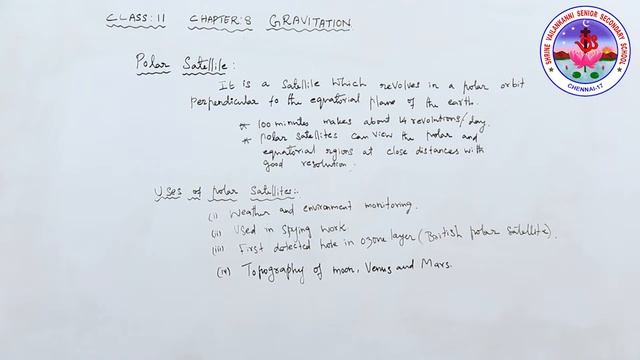 CLASS:11 CHAPTER:8 GRAVITATION
SHRINE VAILANKANNI SENIOR SECONDARY SCHOOL
CHENNAI-17
Polar Satellite:
It is a satellite which revolves in a polar orbit
perpendicular to the equatorial plane of the earth.
* 100 minutes makes about 14 revolutions/day.
* polar satellites can view the polar and
equatorial rgions at close distances with
good resolution.
Uses of polar satellites:.
(i) Weather and environment monitoring.
(ii) Used in spying work
(iii) First detected hole in ozone layer (British polar satellite).
(iv) Topography of moon, Venus and Mars.